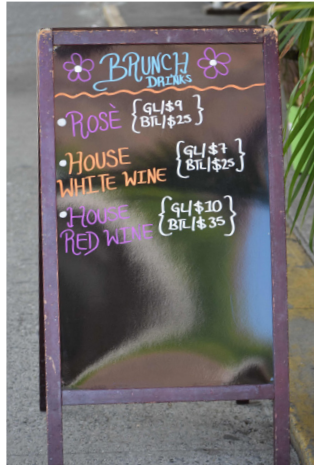 BRUNCH
DRINKS
• ROSÈ {GL/$9
BTL/$25}
• HOUSE
WHITE WINE {GL/$7
BTL/$25}
• HOUSE
RED WINE {GL/$10
BTL/$35}